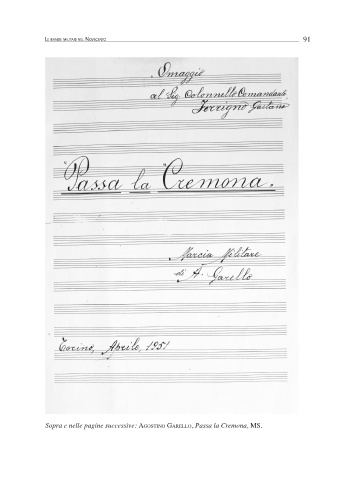 LE BANDE MILITARI NEL NOVECENTO 91
Omaggio
al Sig Colonnello Comandante
Ferrigno Gaetano
"Passa la "Cremona.
Marcia Militare
di A. Garello
Torino, Aprile, 1951
Sopra e nelle pagine successive: AGOSTINO GARELLO, Passa la Cremona, MS.